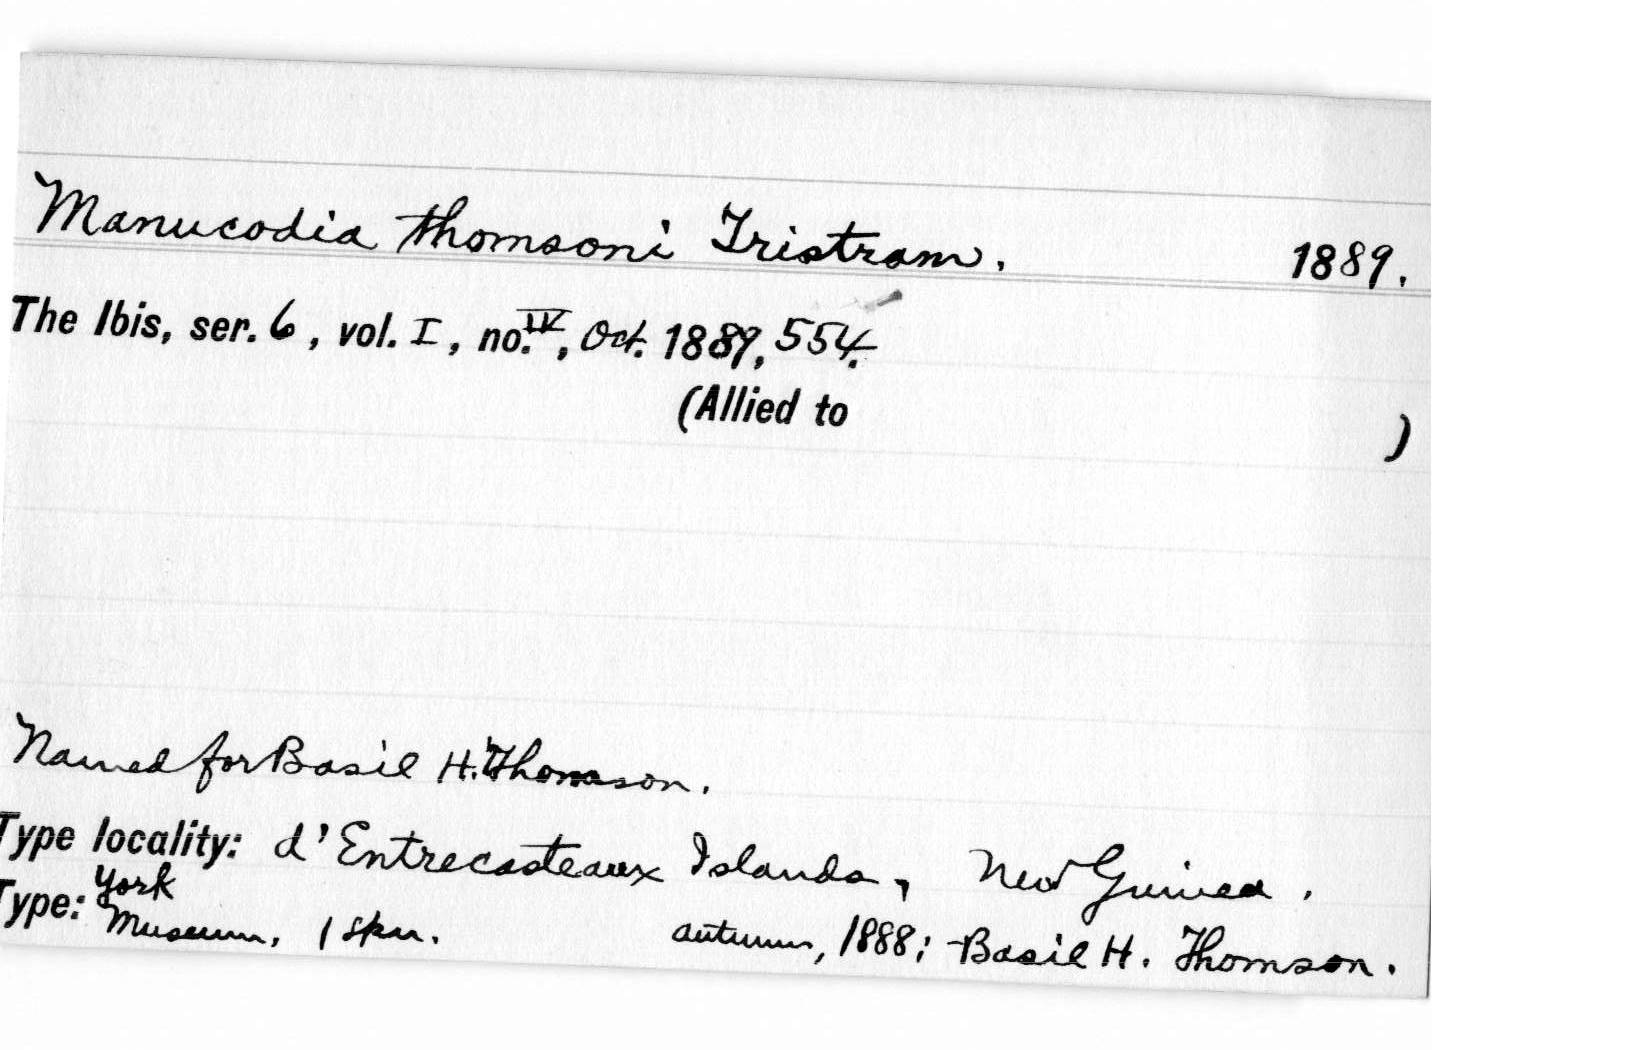 Manucodia thomsoni Tristram. 1889.
The Ibis, ser. 6, vol. I, no. IV, Oct. 1889, 554.
(Allied to )
Named for Basil H. Thomson.
Type locality: d'Entrecasteaux Islands, New Guinea.
Type: York Museum, 1 spn. autumn, 1888; Basil H. Thomson.